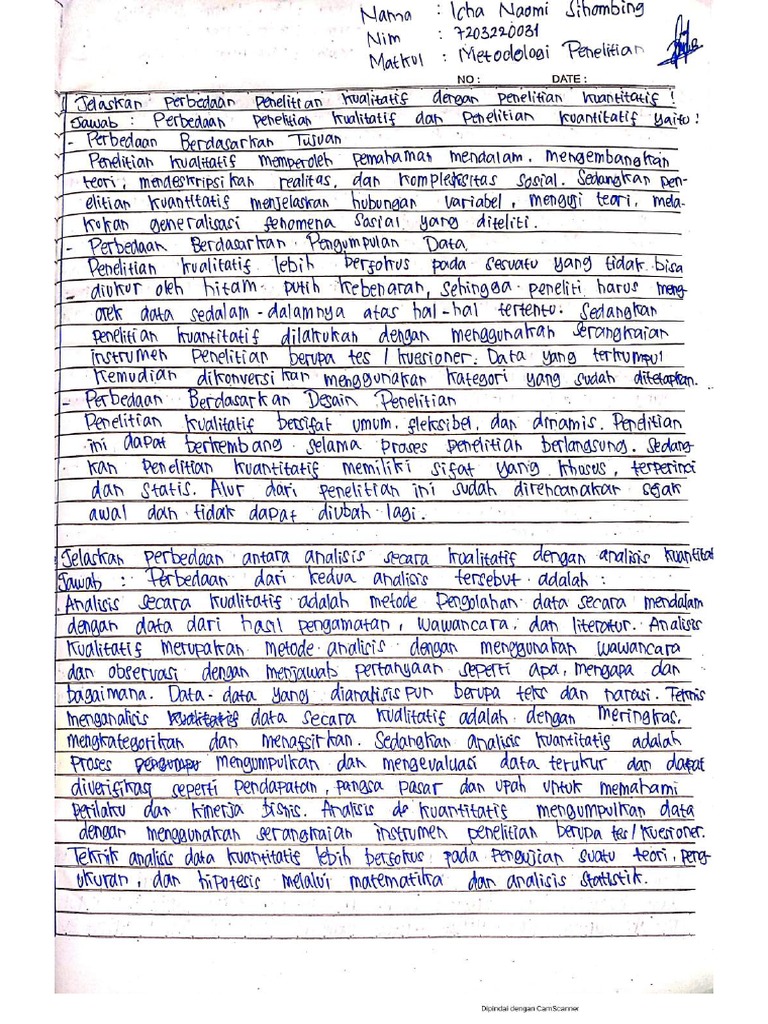 Nama : Icha Naomi Sihombing
Nim : 7203220031
Matkul : Metodologi Penelitian
NO : DATE :
Jelaskan perbedaan penelitian kualitatif dengan penelitian kuantitatif !
Jawab : Perbedaan penelitian kualitatif dan Penelitian kuantitatif yaitu :
- Perbedaan Berdasarkan Tujuan
Penelitian kualitatif memperoleh pemahaman mendalam, mengembangkan
teori, mendeskripsikan realitas, dan kompleksitas sosial. Sedangkan pen-
elitian kuantitatif menjelaskan hubungan variabel, menguji teori, mela-
kukan generalisasi fenomena sosial yang diteliti.
- Perbedaan Berdasarkan Pengumpulan Data.
Penelitian kualitatif lebih berfokus pada sesuatu yang tidak bisa
- diukur oleh hitam-putih kebenaran, sehingga peneliti harus meng-
orek data sedalam-dalamnya atas hal-hal tertentu. Sedangkan
penelitian kuantitatif dilakukan dengan menggunakan serangkaian
instrumen penelitian berupa tes / kuesioner. Data yang terkumpul
kemudian dikonversikan menggunakan kategori yang sudah ditetapkan.
- Perbedaan Berdasarkan Desain Penelitian
Penelitian kualitatif bersifat umum, fleksibel, dan dinamis. Penelitian
ini dapat berkembang selama proses penelitian berlangsung. Sedang
kan Penelitian kuantitatif memiliki sifat yang khusus, terperinci
dan statis. Alur dari penelitian ini sudah direncanakan sejak
awal dan tidak dapat diubah lagi.
Jelaskan perbedaan antara analisis secara kualitatif dengan analisis kuantitat
Jawab : Perbedaan dari kedua analisis tersebut adalah :
Analisis secara kualitatif adalah metode Pengolahan data secara mendalam
dengan data dari hasil pengamatan, wawancara, dan literatur. Analisis
kualitatif merupakan metode analisis dengan menggunakan wawancara
dan observasi dengan menjawab pertanyaan seperti apa, mengapa dan
bagaimana. Data-data yang dianalisis pun berupa teks dan narasi. Teknis
menganalisis kualitatif data secara kualitatif adalah dengan meringkas,
mengkategorikan dan menafsirkan. Sedangkan analisis kuantitatif adalah
Proses pengumpu mengumpulkan dan mengevaluasi data terukur dan dapat
diverifikasi seperti pendapatan, pangsa pasar dan upah untuk memahami
perilaku dan kinerja bisnis. Analisis de kuantitatif mengumpulkan data
dengan menggunakan serangkaian instrumen penelitian berupa tes / kuesioner.
Teknik analisis data kuantitatif lebih berfokus pada pengujian suatu teori, peng-
ukuran, dan hipotesis melalui matematika dan analisis statistik.
Dipindai dengan CamScanner